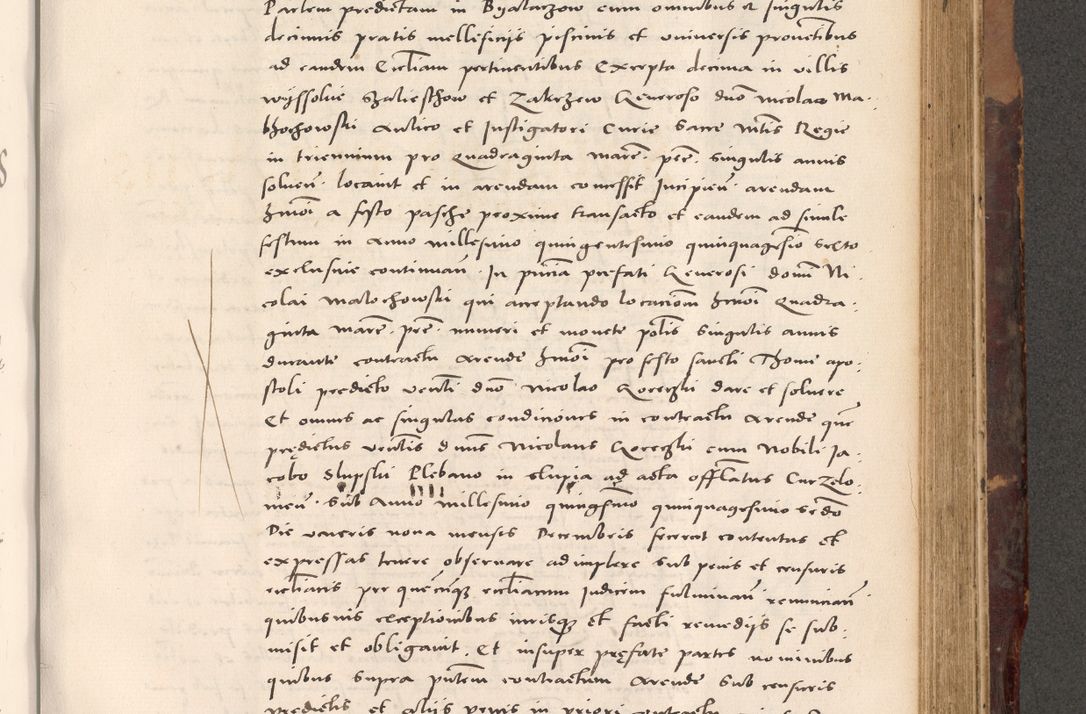 Partem predictam in Byalaczow cum omnibus et singulis
decimis pratis mellificijs piscinis et vniversis proventibus
ad eandem Eccliam pertinentibus Excepta decima in villis
wyssolye Szalieschow et Zakrzew Generoso dno nicolao Ma-
lochowski Aulico et Instigatori Curie Sacre Mtis Regie
in triennium pro Quadraginta marc. pec. singulis annis
solven. locavit et in arendam concessit Incipien. arendam
hmoi a festo pasche proxime transacto et eandem ad simile
festum in Anno millesimo quingentesimo quinquagesio sexto
exclusive continuan. In pntia prefati Generosi domi Ni-
colai Malochowski qui acceptando locacionem hmoi Quadra-
ginta marc. pec. numeri et monete polis singulis annis
durante contractu Arende hmoi pro festo sancti Thome apo-
stoli predicto venli dno Nicolao dare et solvere
Et omnes ac singulas condiciones in contractu Arende quem
predictus venlis dnus Nicolaus cum Nobili Ja-
cobo Slupski Plebano in Slupia ad acta offilatus Curzelo-
men. Sub Anno millesimo quingsimo quinquagesimo secdo
Die veneris nona mensis Decembris fecerat contentas et
expressas tenere observare adimplere sub penis et censuris
ecclicis per quemcunq ecclicum Judicem fulminan renuncian
quibusvis exceptionibus iurisq et facti remedijs se sub-
misit et obligavit. Et insuper prefate partes nominibus
quibus supra pntem contractum Arende sub censuris
predictis et alijs penis in priori contractu